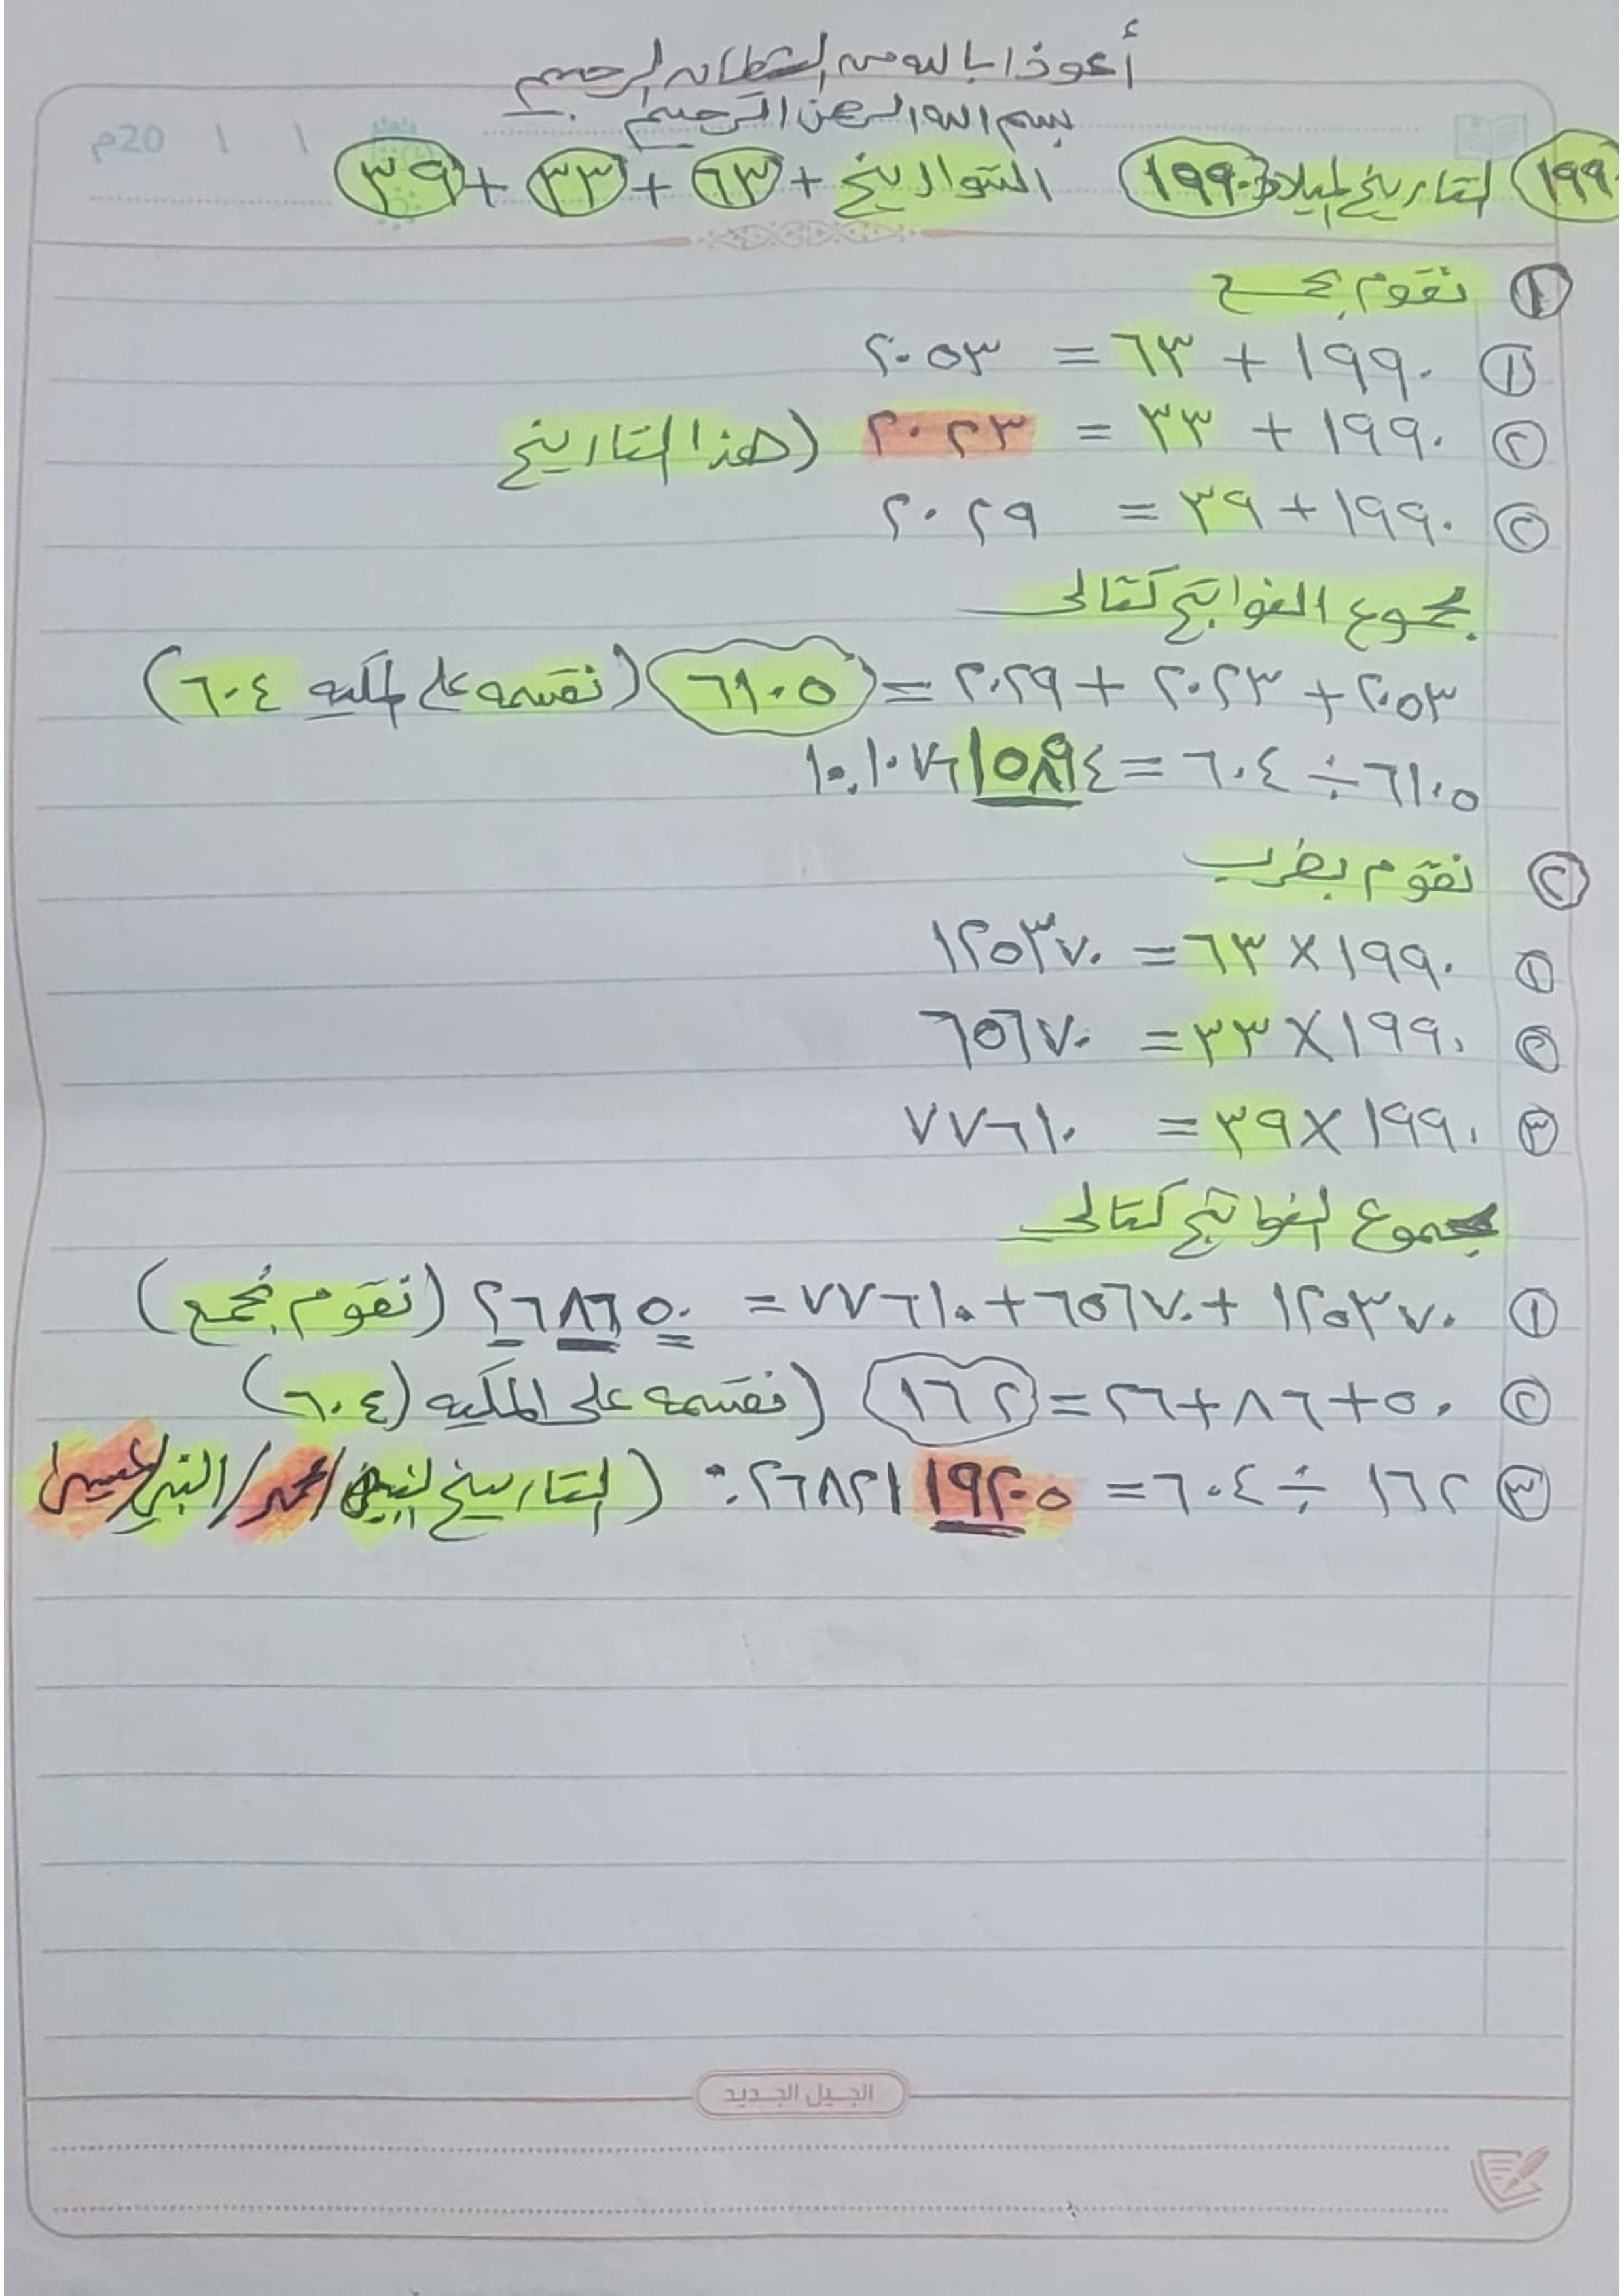 أعوذ بالله من الشيطان الرجيم
بسم الله الرحمن الرحيم
20م / /
١٩٩٠ التاريخ الميلاد ١٩٩٠ التواريخ + ٦٣ + ٣٣ + ٣٩
١ نقوم بجمع
١ ١٩٩٠ + ٦٣ = ٢٠٥٣
٢ ١٩٩٠ + ٣٣ = ٢٠٢٣ (هذا التاريخ
٣ ١٩٩٠ + ٣٩ = ٢٠٢٩
مجموع النواتج كتالي
٢٠٥٣ + ٢٠٢٣ + ٢٠٢٩ = ٦١٠٥ (نقسمه على المكيه ٦٠٤)
٦١٠٥ ÷ ٦٠٤ = ١٠,١٠٧٦١٥٨٩٤
٢ نقوم بضرب
١ ١٩٩٠ × ٦٣ = ١٢٥٣٧٠
٢ ١٩٩٠ × ٣٣ = ٦٥٦٧٠
٣ ١٩٩٠ × ٣٩ = ٧٧٦١٠
مجموع النواتج كتالي
١ ١٢٥٣٧٠ + ٦٥٦٧٠ + ٧٧٦١٠ = ٢٦٨٦٥٠ (نقوم بجمع)
٢ ٥٠ + ٨٦ + ٢٦ = ١٦٢ (نقسمه على المكيه (٦٠٤)
٣ ١٦٢ ÷ ٦٠٤ = ٠.٢٦٨٢١١٩٢٠٥ (التاريخ النبي/محمد/النبي/عيسى
الجيل الجديد